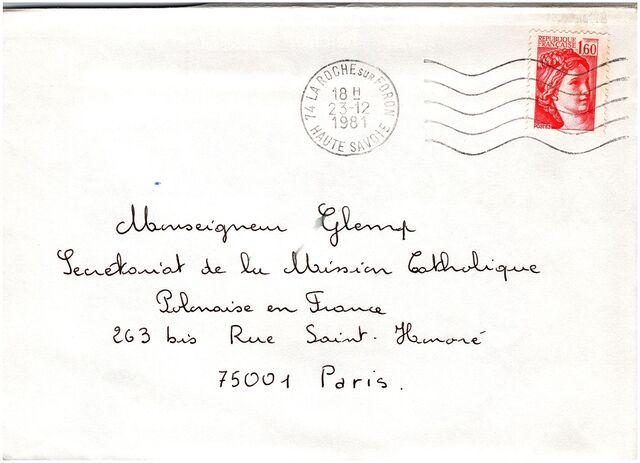 RÉPUBLIQUE
FRANÇAISE 1,60
POSTES
74 LA ROCHE SUR FORON
18 H
23-12
1981
HAUTE SAVOIE
Monseigneur Glemp
Secrétariat de la Mission Catholique
Polonaise en France
263 bis Rue Saint-Honoré
75001 Paris.